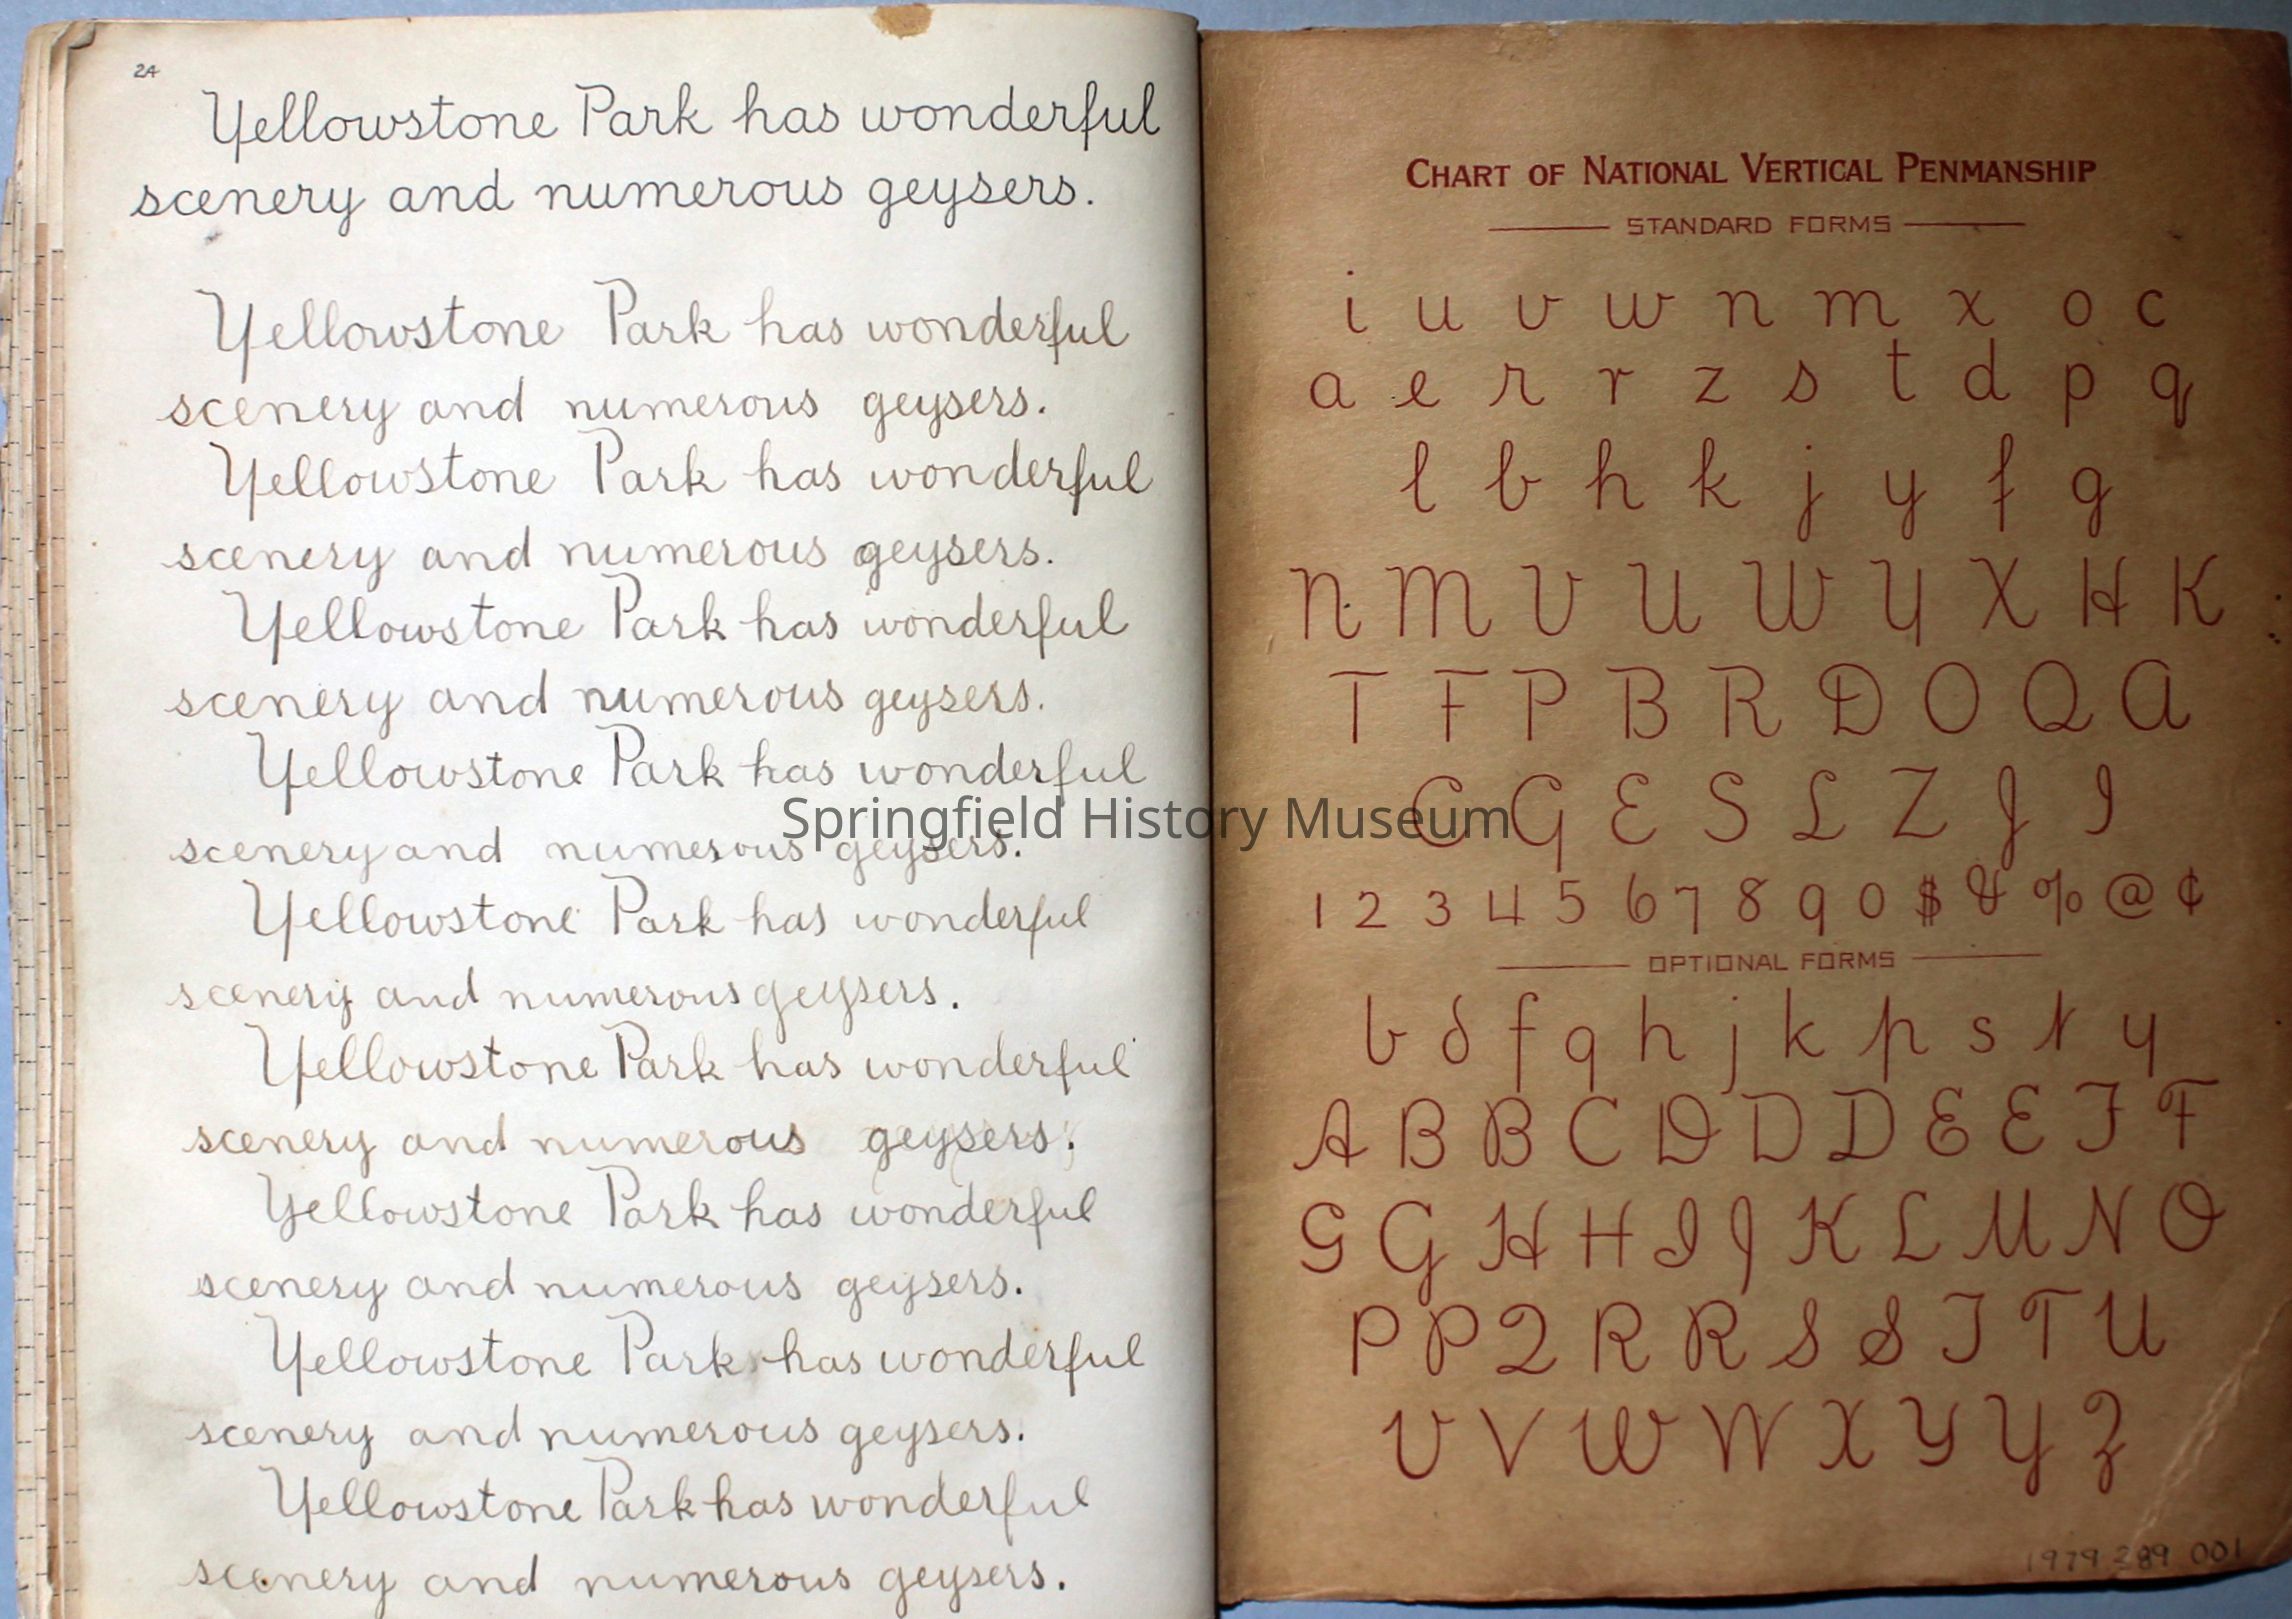 24
Yellowstone Park has wonderful
scenery and numerous geysers.
Yellowstone Park has wonderful
scenery and numerous geysers.
Yellowstone Park has wonderful
scenery and numerous geysers.
Yellowstone Park has wonderful
scenery and numerous geysers.
Yellowstone Park has wonderful
scenery and numerous geysers.
Yellowstone Park has wonderful
scenery and numerous geysers.
Yellowstone Park has wonderful
scenery and numerous geysers.
Yellowstone Park has wonderful
scenery and numerous geysers.
Yellowstone Park has wonderful
scenery and numerous geysers.
Yellowstone Park has wonderful
scenery and numerous geysers.
CHART OF NATIONAL VERTICAL PENMANSHIP
STANDARD FORMS
i u v w n m x o c
a e r r z s t d p q
l b h k j y f g
N M V U W Y X H K
T F P B R D O Q A
C G E S L Z J I
1 2 3 4 5 6 7 8 9 0 $ & % @ ¢
OPTIONAL FORMS
b d f q h j k p s t y
A B B C D D D E E F F
G G H H I J K L M N O
P P Q R R S S T T U
V V W W X Y Y Z
1979 289 001
Springfield History Museum